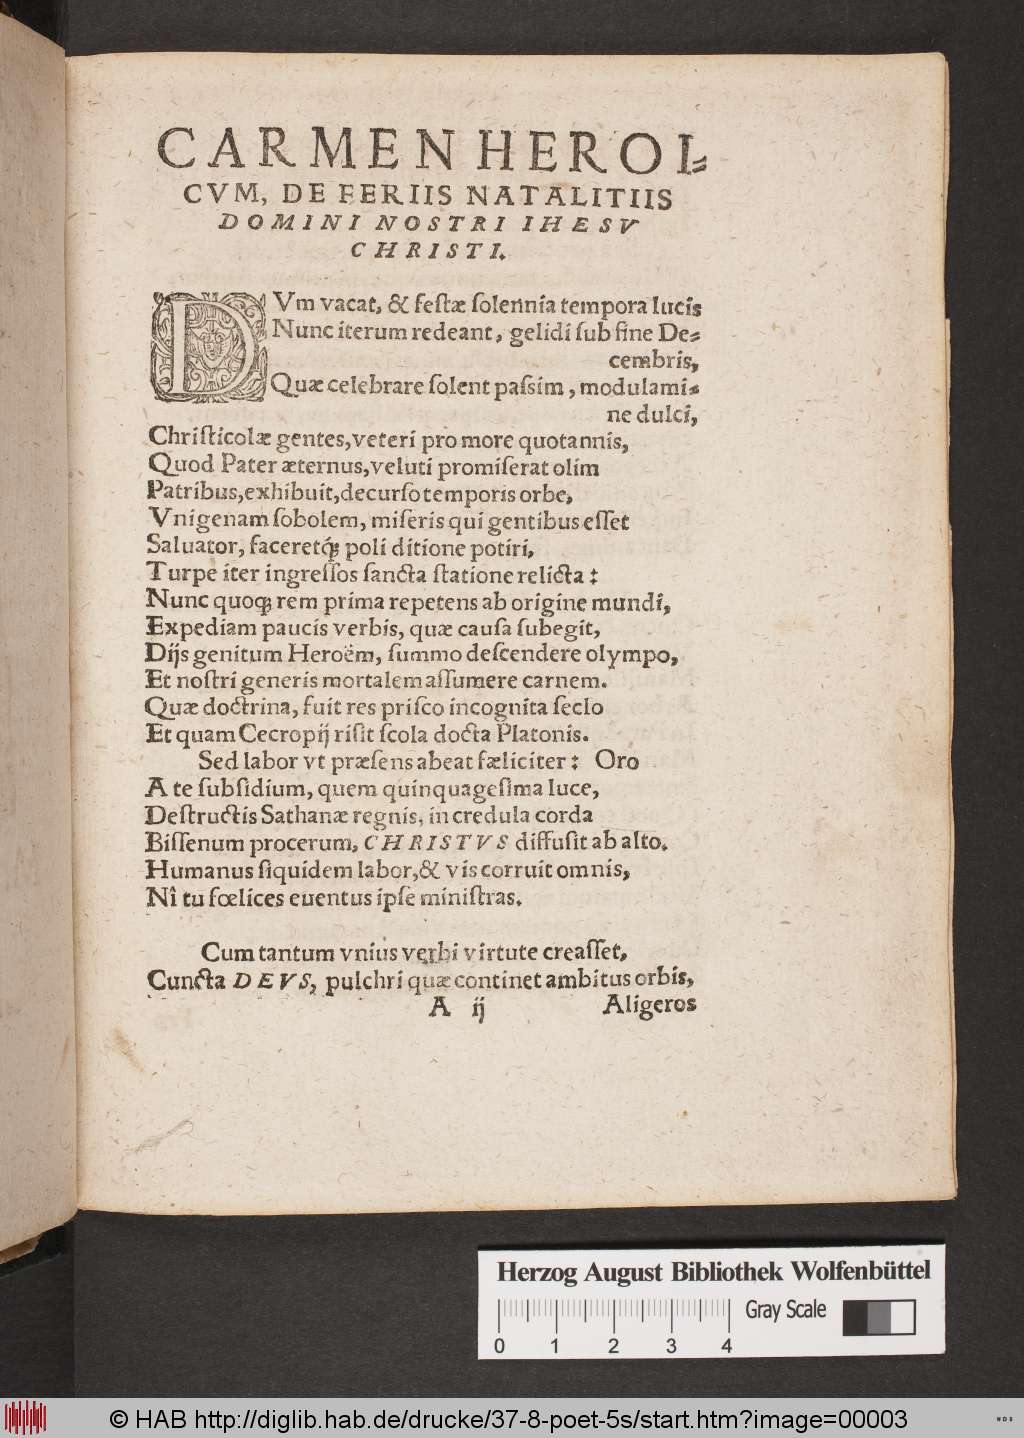 CARMEN HEROI⸗
CVM, DE FERIIS NATALITIIS
DOMINI NOSTRI IHESV
CHRISTI.
DVm vacat, & festæ solennia tempora lucis
Nunc iterum redeant, gelidi sub fine De⸗
cembris,
Quæ celebrare solent passim, modulami⸗
ne dulci,
Christicolæ gentes, veteri pro more quotannis,
Quod Pater æternus, veluti promiserat olim
Patribus, exhibuit, decurso temporis orbe,
Vnigenam sobolem, miseris qui gentibus esset
Saluator, faceretq́; poli ditione potiri,
Turpe iter ingressos sancta statione relicta:
Nunc quoq; rem prima repetens ab origine mundi,
Expediam paucis verbis, quæ causa subegit,
Dijs genitum Heroëm, summo descendere olympo,
Et nostri generis mortalem assumere carnem.
Quæ doctrina, fuit res prisco incognita seclo
Et quam Cecropij risit scola docta Platonis.
Sed labor vt præsens abeat fæliciter: Oro
A te subsidium, quem quinquagesima luce,
Destructis Sathanæ regnis, in credula corda
Bissenum procerum, CHRISTVS diffusit ab alto.
Humanus siquidem labor, & vis corruit omnis,
Nî tu fœlices euentus ipse ministras.
Cum tantum vnius verbi virtute creasset,
Cuncta DEVS, pulchri quæ continet ambitus orbis,
A ij Aligeros
Herzog August Bibliothek Wolfenbüttel
Gray Scale
0 1 2 3 4
© HAB http://diglib.hab.de/drucke/37-8-poet-5s/start.htm?image=00003